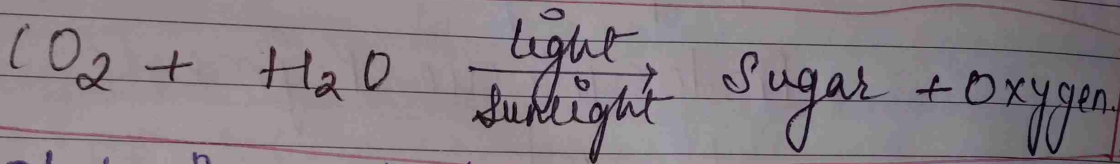 CO2 + H2O light/sunlight → Sugar + Oxygen.